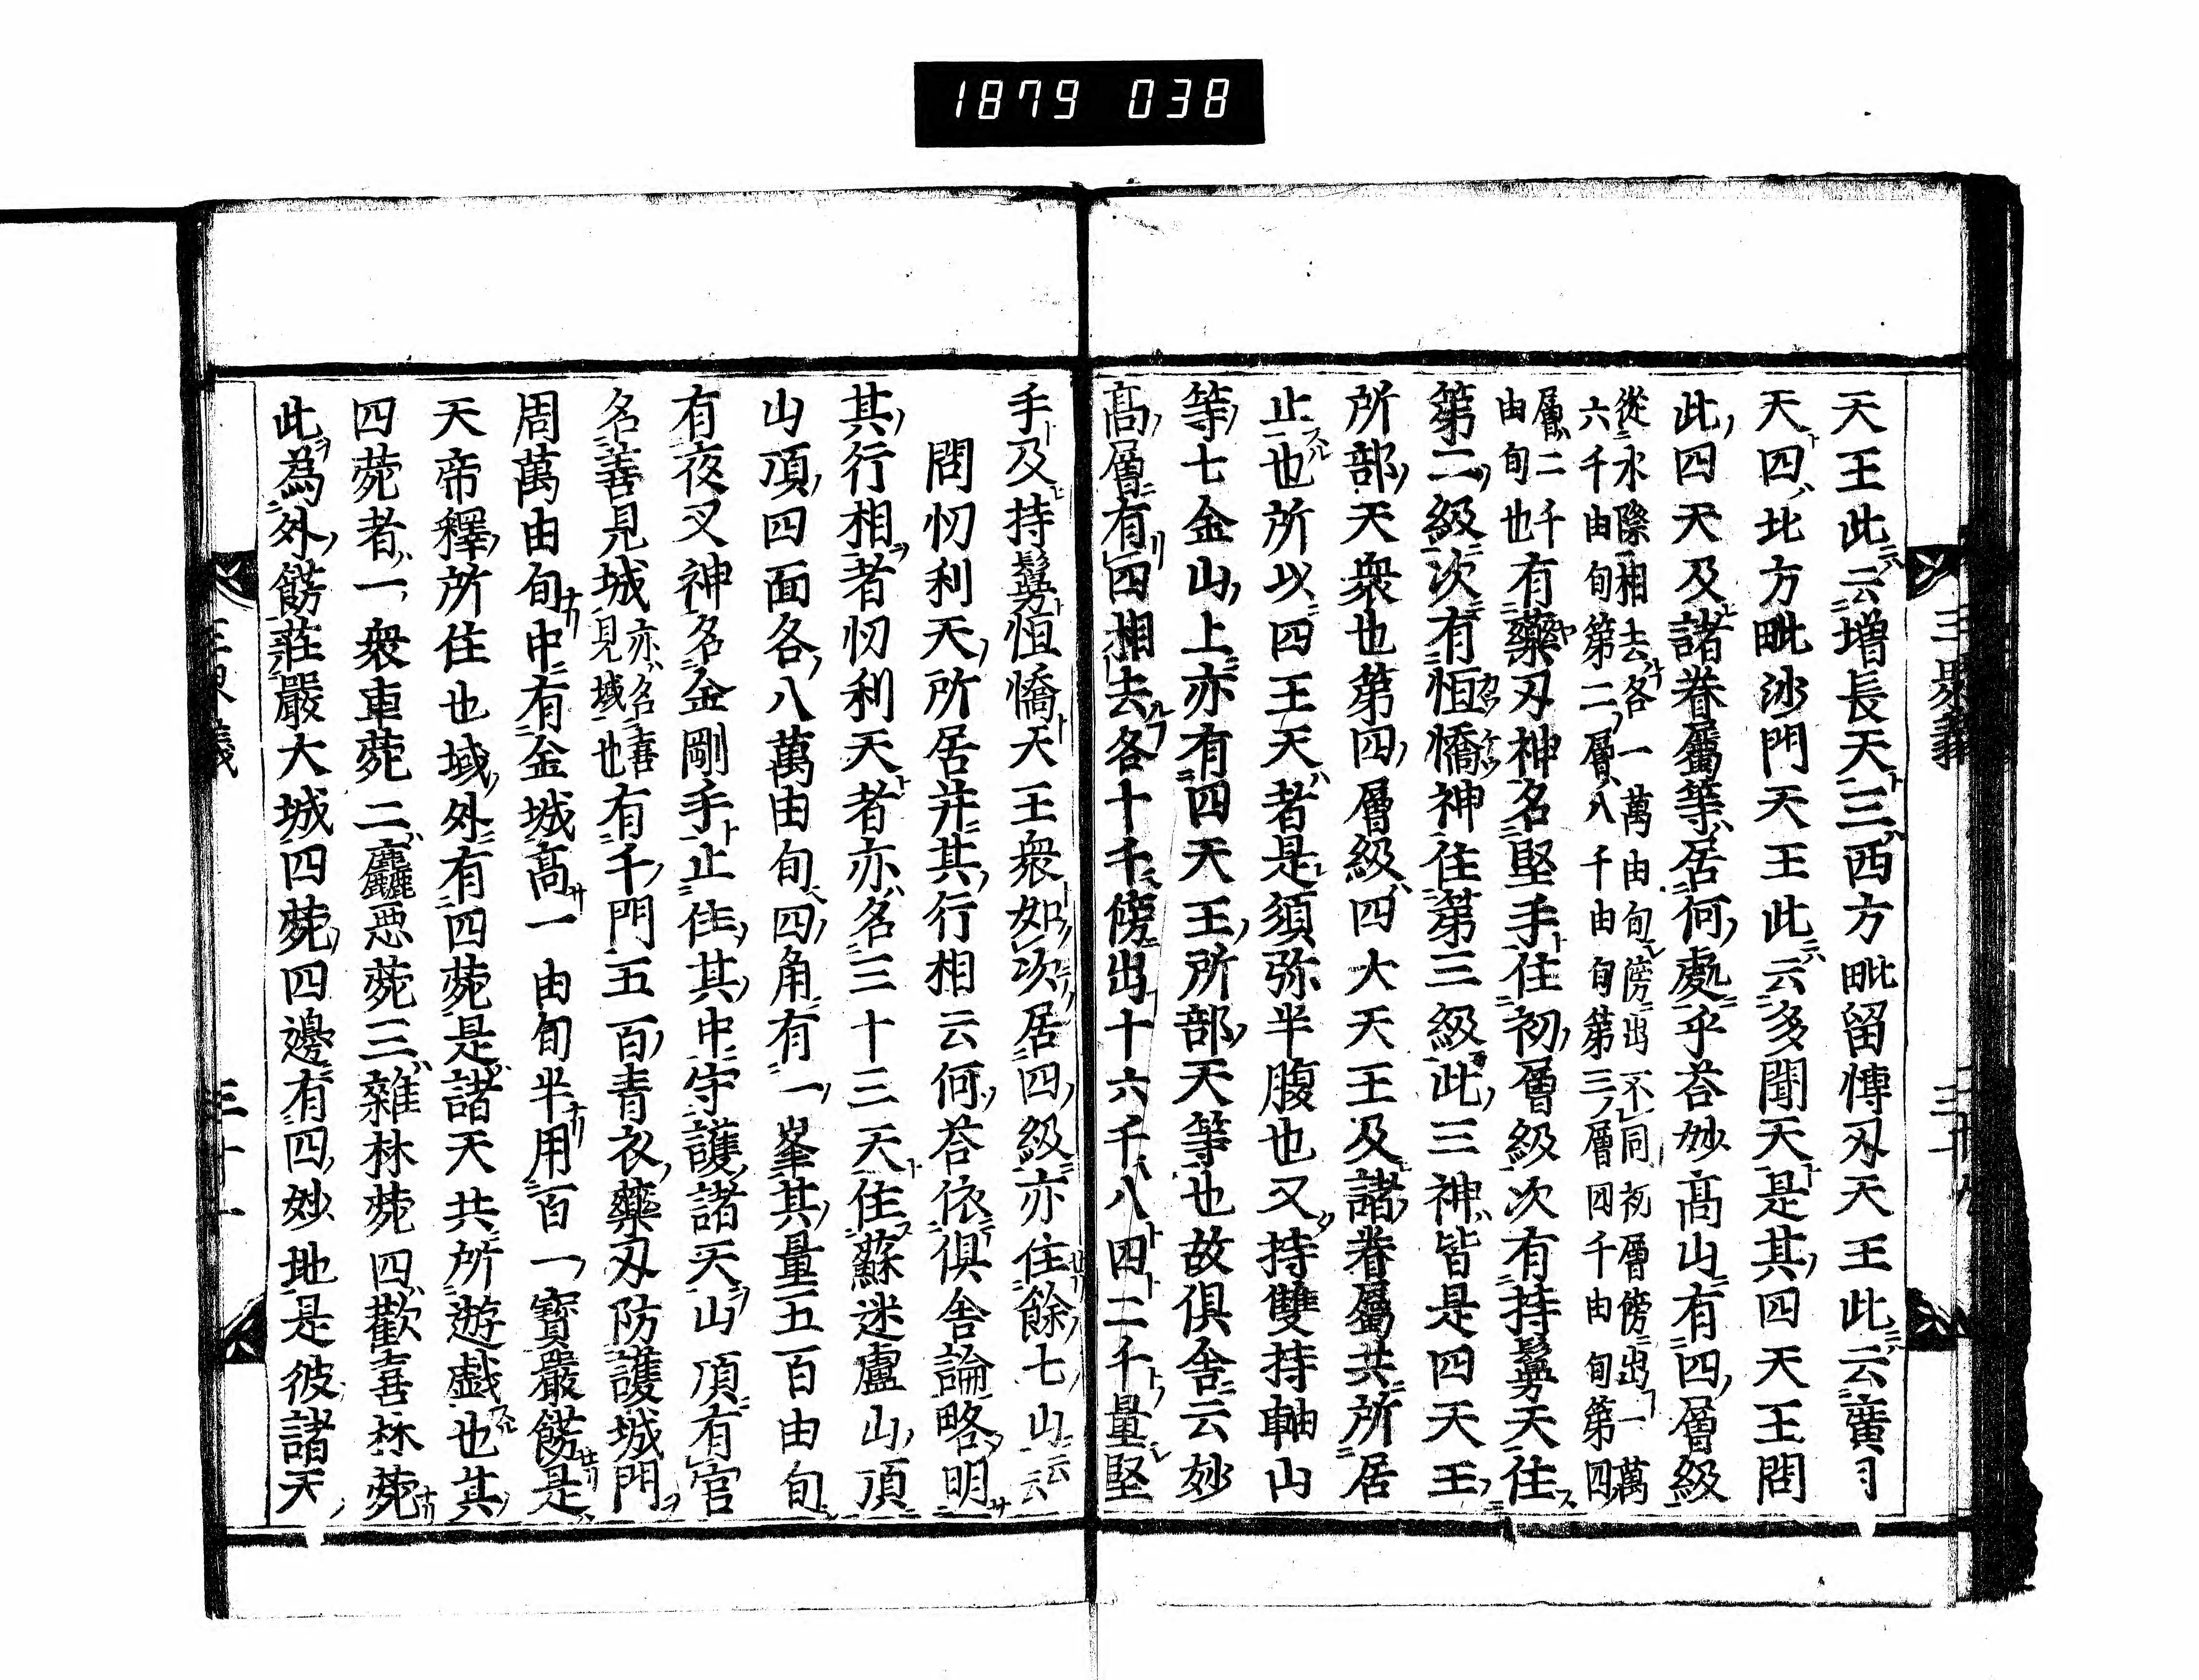 1879 038
三界義
天王此云増長天三西方毗留愽叉天王此云廣目
天四北方毗沙門天王此云多聞天是其四天王問
此四天及諸眷屬等居何處乎荅妙高山有四層級
從水際相去各一萬由旬傍出不同初層傍出一萬
六千由旬第二層八千由旬第三層四千由旬第四
層二千
由旬也有藥叉神名堅手住初層級次有持鬘天住
第二級次有恒憍神住第三級此三神皆是四天王
所部天衆也第四層級四大天王及諸眷屬共所居
止也所以四王天者是須弥半腹也又持雙持軸山
等七金山上亦有四天王所部天等也故俱舍云妙
高層有四相去各十千傍出十六千八四二千量堅
手及持鬘恒憍天王衆如次居四級亦住餘七山云云
問忉利天所居并其行相云何荅依俱舍論略明
其行相者忉利天者亦名三十三天住蘇迷盧山頂
山頂四面各八萬由旬四角有一峯其量五百由旬
有夜叉神名金剛手止住其中守護諸天山頂有宮
名善見城亦名喜見城也有千門五百青衣藥叉防護城門
周萬由旬中有金城高一由旬半用百一寶嚴餝是
天帝釋所住也城外有四菀是諸天共所遊戲也其
四菀者一衆車菀二麤惡菀三雜林菀四歡喜林菀
此為外餝莊嚴大城四菀四邊有四妙地是彼諸天
三十一